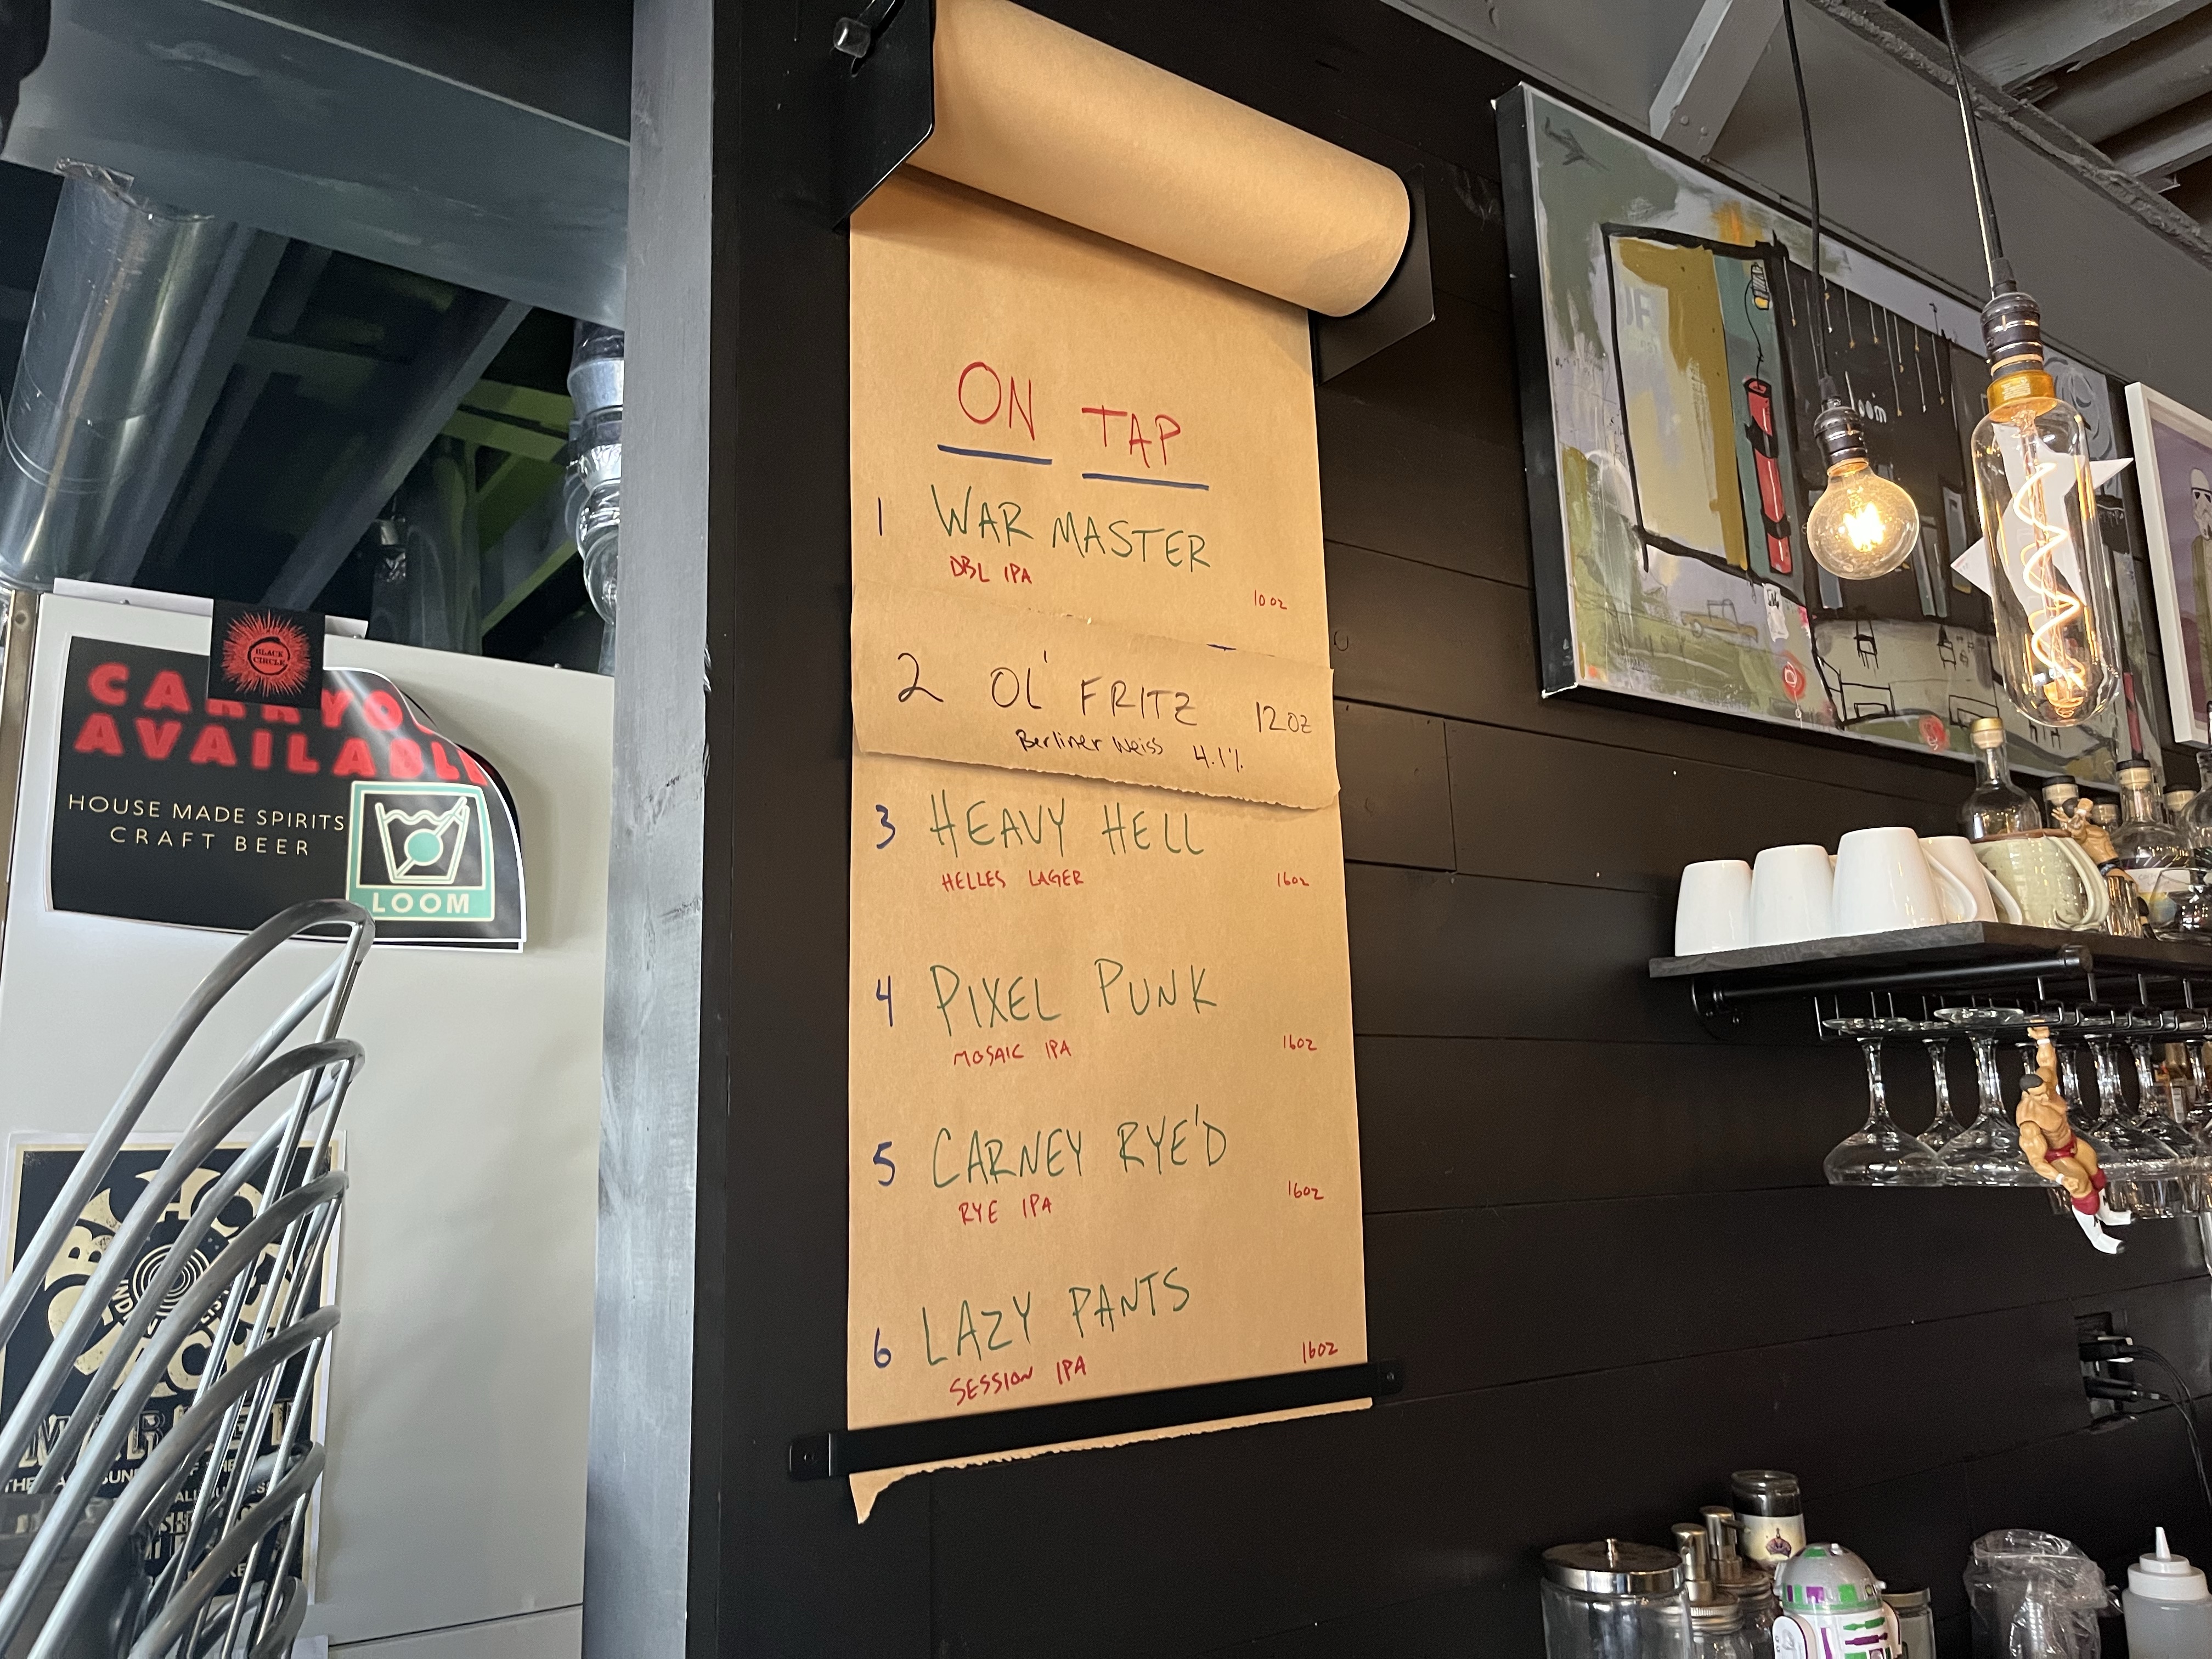 ON TAP
1 WAR MASTER
DBL IPA 10oz
2 OL' FRITZ 12oz
Berliner Weiss 4.1%
3 HEAVY HELL
HELLES LAGER 16oz
4 PIXEL PUNK
MOSAIC IPA 16oz
5 CARNEY RYE'D
RYE IPA 16oz
6 LAZY PANTS
SESSION IPA 16oz
BLACK
CIRCLE
AVAILABL
HOUSE MADE SPIRITS
CRAFT BEER
LOOM